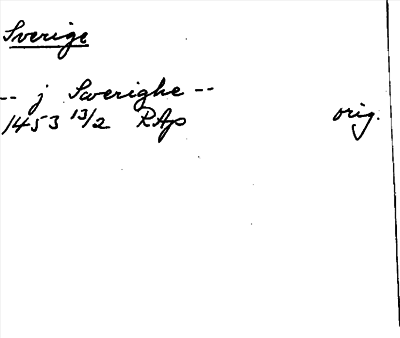 Sverige
-- j Swerighe --
1453 13/2 RAp orig.